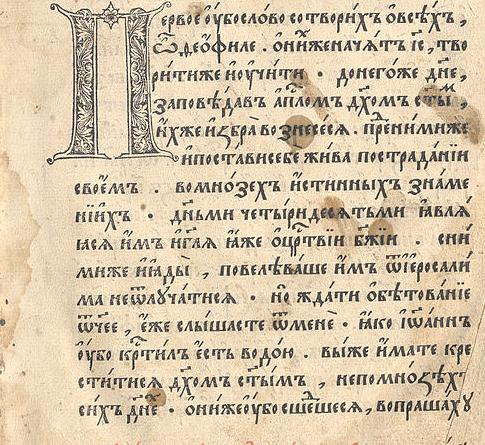 Первое ᲂубо слово сотворихъ ѡ всѣхъ,
ѽ деѳфиле. ѡ нихже начатъ і҃с, тво
рити же и ᲂучити. донегоже дн҃е,
заповѣдавъ ап҃лѡмъ дх҃омъ ст҃ымъ,
ихже избра вознесеся. пред ними же
и постави себе жива по страданїи
своемъ. во мнозехъ истинныхъ зна́ме
нїихъ. дн҃ьми четыридесятьми ꙗвлѧ
ꙗся имъ и г҃лѧ ꙗже ѡ црⷭ҇твїи бж҃їи. с ни
миже и ꙗды̀, повелѣваше имъ ѿ і҆еросали
ма не ѿлучатися. но ждати ѡбѣтованїе
ѿчее, еже слышасте ѿ мене. ꙗко і҆ѡаннъ
ᲂубо крⷭ҇тилъ есть водою. вы же имате кре
ститися дх҃омъ ст҃ымъ, не по мнозѣхъ
сихъ дн҃ехъ. ѡни же ᲂубо сшедшеся, вопрашаху